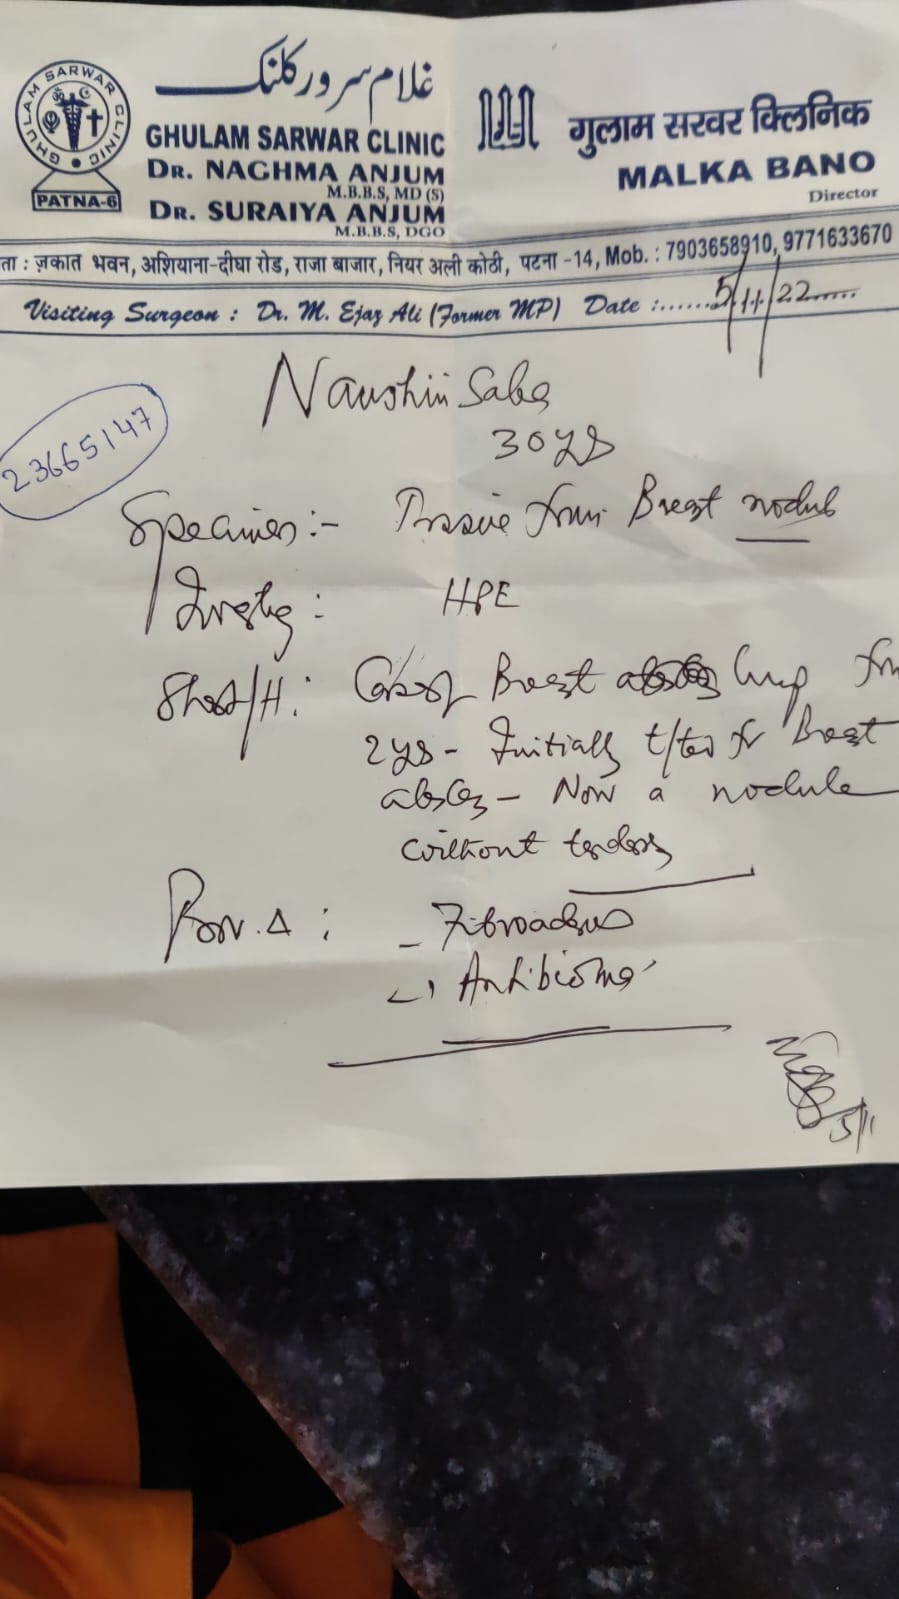 غلام سرور کلنک
GHULAM SARWAR CLINIC
GHULAM SARWAR CLINIC
PATNA-6
DR. NAGHMA ANJUM
M.B.B.S, MD (S)
DR. SURAIYA ANJUM
M.B.B.S, DGO
गुलाम सरवर क्लिनिक
MALKA BANO
Director
ता : ज़कात भवन, अशियाना-दीघा रोड, राजा बाजार, नियर अली कोठी, पटना -14, Mob. : 7903658910, 9771633670
Visiting Surgeon : Dr. M. Ejaz Ali (Former MP) Date :......5/11/22......
Naushin Saba
30ys
23665147
Specimen :- Tissue from Breast nodule
HPE
Short/H : Case of Breast lump from
2ys - Initially t/ted for Breast
abscess - Now a nodule
without
Prov. Δ : - Fibroadenoma
Antibioma
5/11